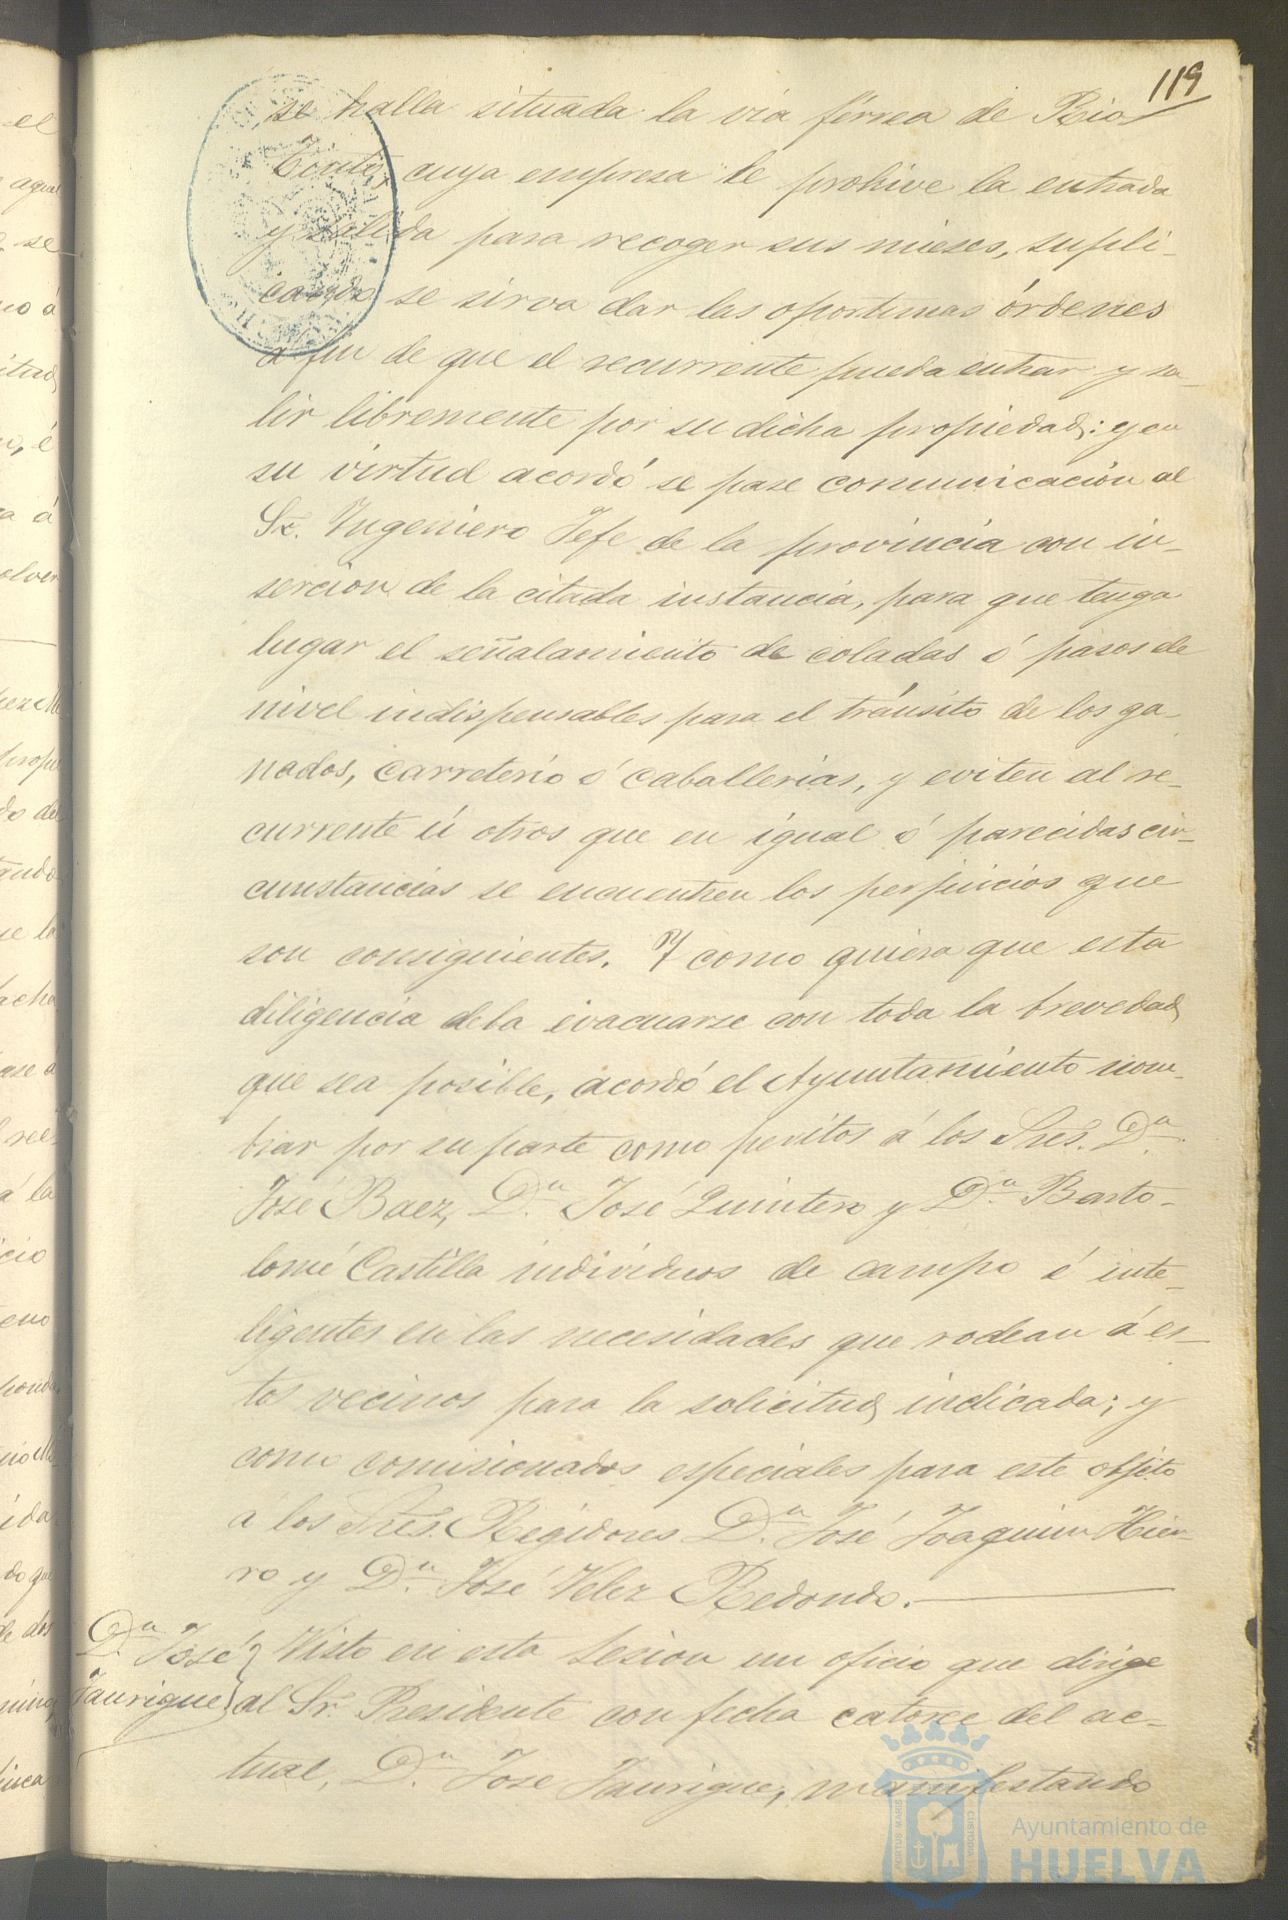 119
se halla situada la via férrea de Rio
Tinto, cuya empresa le prohive la entrada
y salida para recoger sus mieses, supli-
cando se sirva dar las oportunas órdenes
a fin de que el recurrente pueda entrar y sa-
lir libremente por su dicha propiedad: y en
su virtud acordó se pase comunicación al
Sr. Ingeniero Jefe de la provincia con in-
sercion de la citada instancia, para que tenga
lugar el señalamiento de coladas ó pasos de
nivel indispensables para el tránsito de los ga-
nados, carreterio ó caballerias, y eviten al re-
currente ú otros que en igual ó parecidas cir-
cunstancias se encuentren los perjuicios que
son consiguientes. Y como quiera que esta
diligencia deba evacuarse con toda la brevedad
que sea posible, acordó el Ayuntamiento nom-
brar por su parte como peritos á los Sres. Dn.
José Baez, Dn. José Quintero y Dn. Barto-
lomé Castilla individuos de campo é inte-
ligentes en las necesidades que rodean á es-
tos vecinos para la solicitud indicada; y
como comisionados especiales para este objeto
a los Sres. Regidores Dn. José Joaquin Hier-
ro y Dn. José Velez Redondo.
Dn. José
Jaurigue
Visto en esta sesion un oficio que dirige
al Sr. Presidente con fecha catorce del ac-
tual, Dn. Jose Jaurigue, manifestando
PORTUS MARIS CUSTODIA
Ayuntamiento de
HUELVA